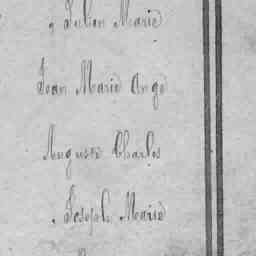 Julien Marie
Jean Marie Ange
Auguste Charles
Joseph Marie